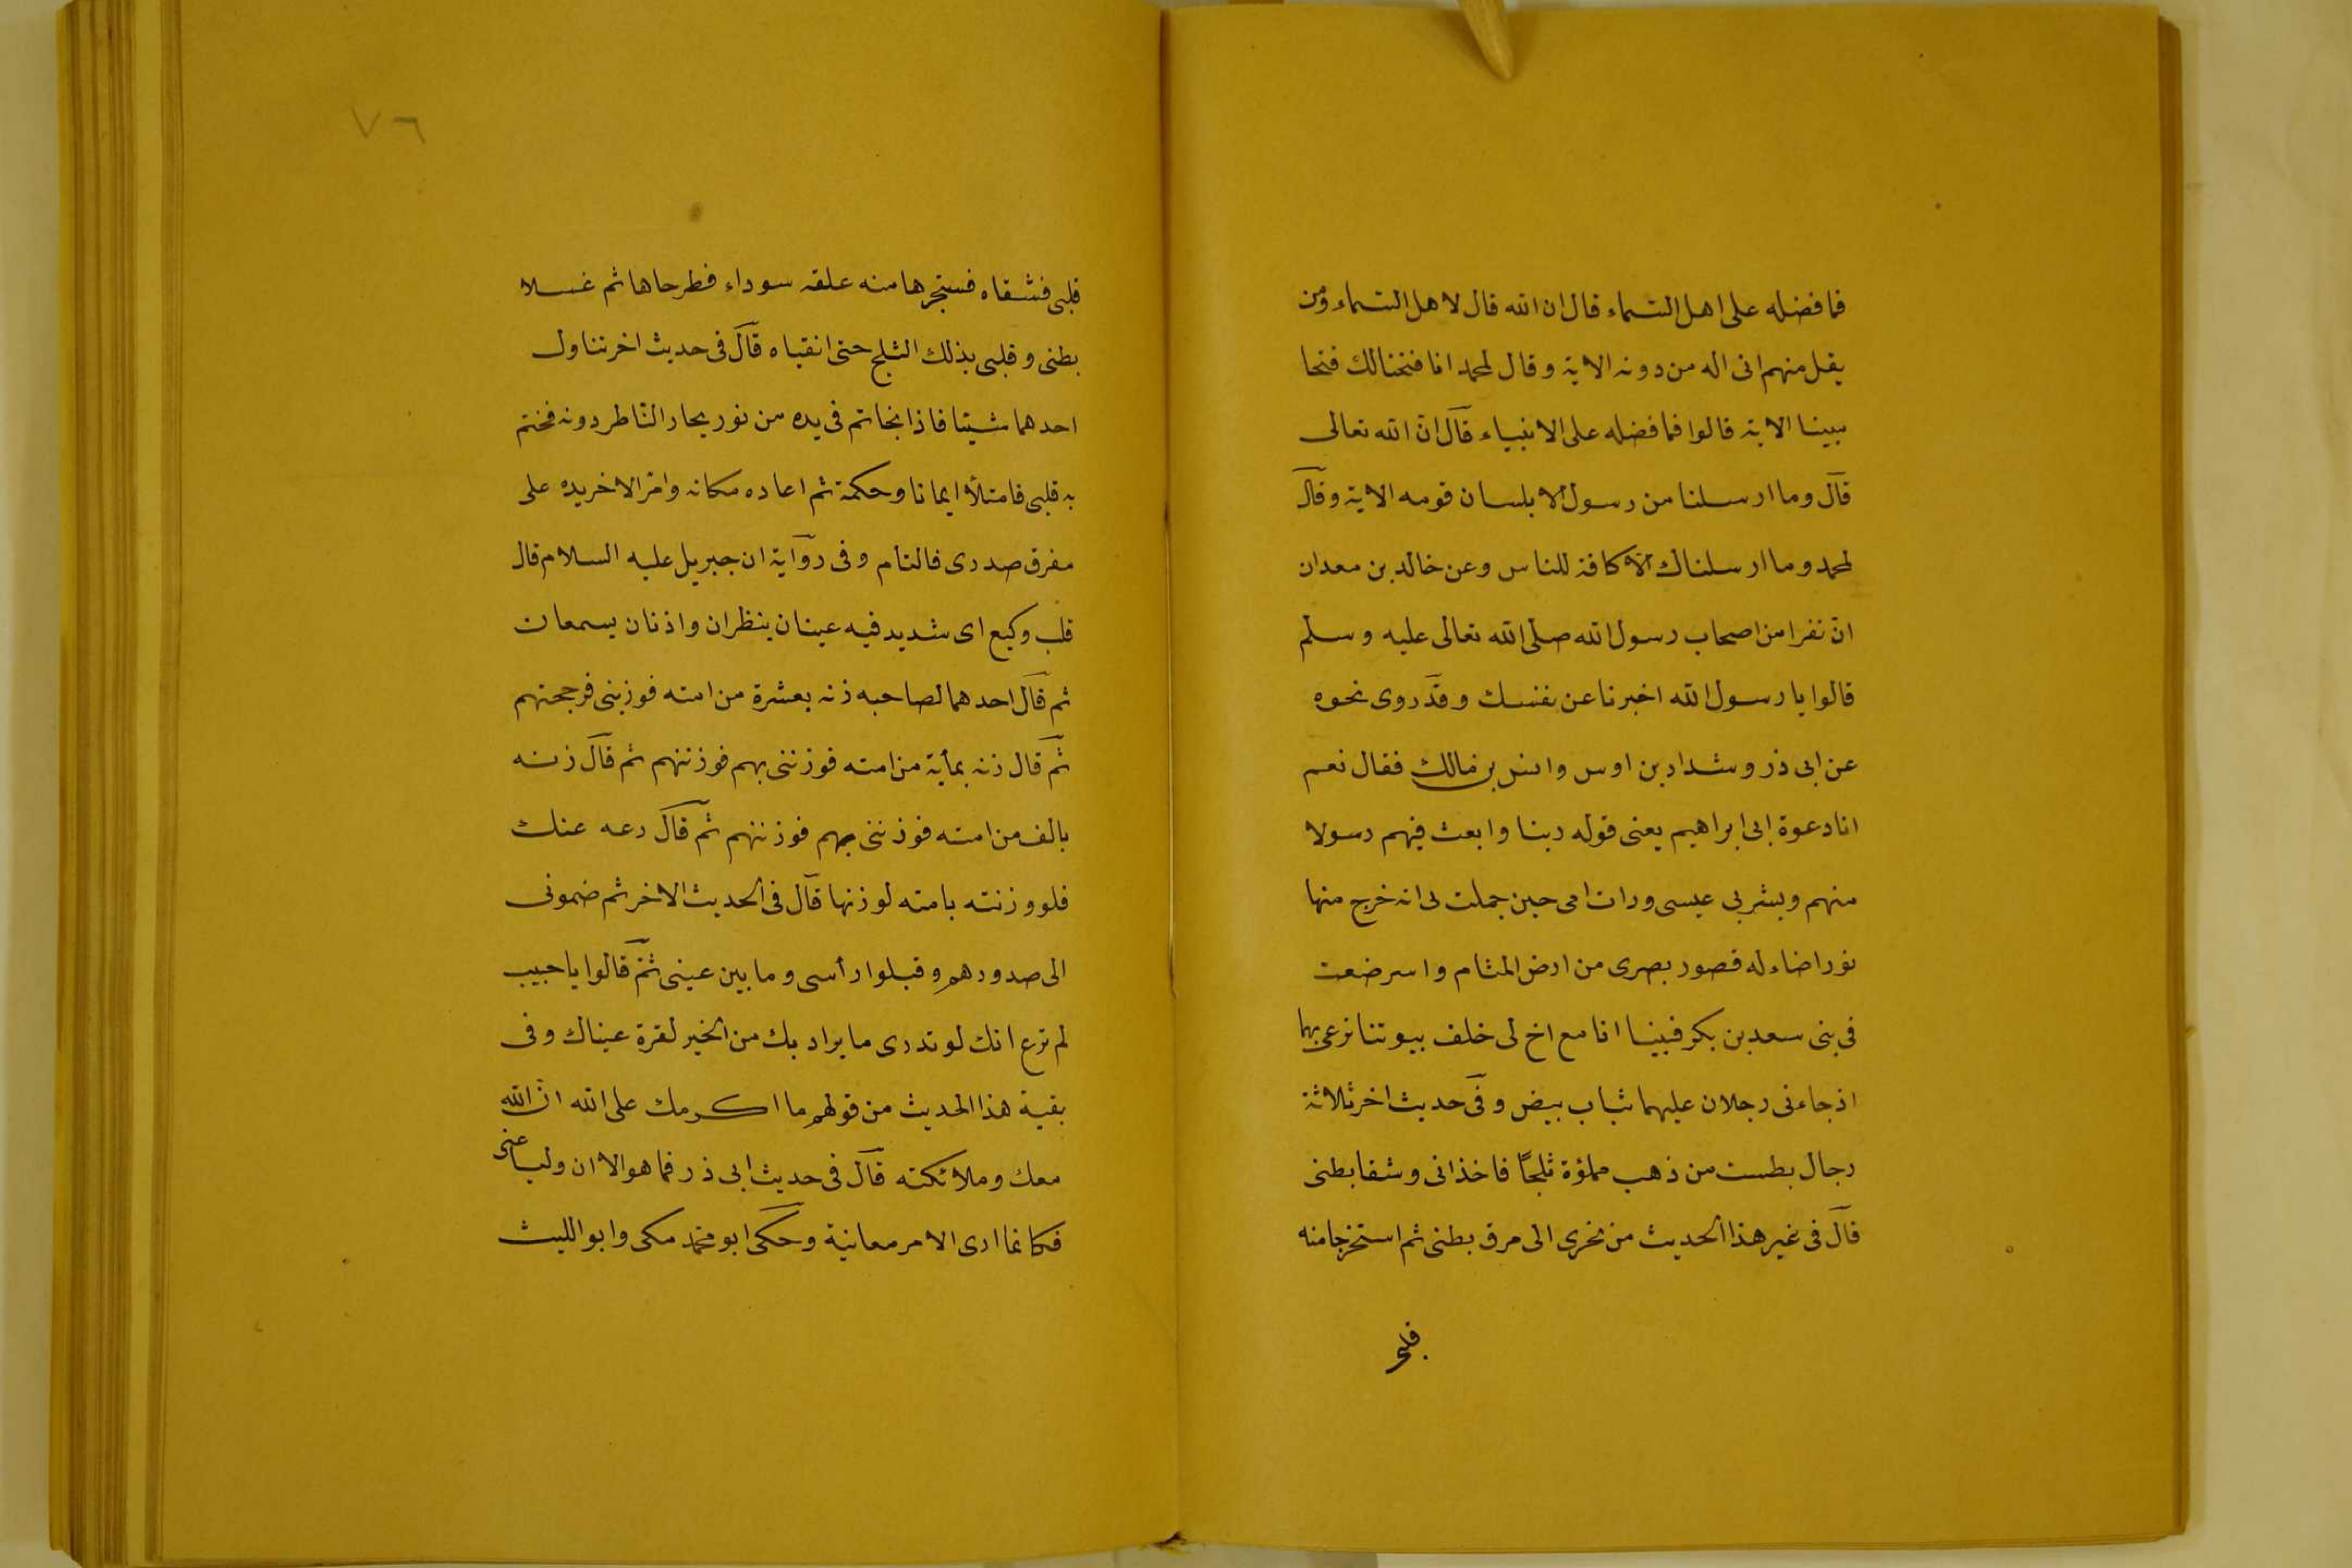 فما فضله على اهل السماء قال ان الله قال لاهل السماء ومن
يقل منهم انى اله من دونه الاية وقال لمحمد انا فتحنا لك فتحا
مبينا الاية قالوا فما فضله على الانبياء قال ان الله تعالى
قال وما ارسلنا من رسول الا بلسان قومه الاية وقال
لمحمد وما ارسلناك الا كافة للناس وعن خالد بن معدان
ان نفرا من اصحاب رسول الله صلى الله تعالى عليه وسلم
قالوا يا رسول الله اخبرنا عن نفسك وقد روى نحوه
عن ابى ذر وشداد بن اوس وانس بن مالك فقال نعم
انا دعوة ابى ابراهيم يعنى قوله ربنا وابعث فيهم رسولا
منهم وبشر بى عيسى ورات امى حين حملت بى انه خرج منها
نورا ضاء له قصور بصرى من ارض الشام واسرضعت
فى بنى سعد بن بكر فبينا انا مع اخ لى خلف بيوتنا نرعى بهما
اذ جاءنى رجلان عليهما ثياب بيض وفى حديث اخر ثلاثة
رجال بطست من ذهب مملؤة ثلجًا فاخذانى وشقا بطنى
قال فى غير هذا الحديث من نحرى الى مرق بطنى ثم استخرجا منه
قلبى
٧٦
قلبى فشقاه فستجرها منه علقة سوداء فطرحاها ثم غسلا
بطنى وقلبى بذلك الثلج حتى انقياه قال فى حديث اخر تناول
احدهما شيئا فاذا بخاتم فى يده من نور يحار الناظر دونه فختم
به قلبى فامتلأ ايمانا وحكمة ثم اعاده مكانه وامر الاخر يده على
مفرق صدرى فالتأم وفى رواية ان جبريل عليه السلام قال
قلب وكيع اى شديد فيه عينان ينظران واذنان يسمعان
ثم قال احدهما لصاحبه زنه بعشرة من امته فوزننى فرجحتهم
ثم قال زنه بمأية من امته فوزننى بهم فوزنتهم ثم قال زنه
بالف من امته فوزننى بهم فوزنتهم ثم قال دعه عنك
فلو وزنته بامته لوزنها قال فى الحديث الاخر ثم ضمونى
الى صدورهم وقبلوا رأسى وما بين عينى ثم قالوا يا حبيب
لم ترع انك لو تدرى ما يراد بك من الخير لقرة عيناك وفى
بقية هذا الحديث من قولهم ما اكرمك على الله ان الله
معك وملائكته قال فى حديث ابى ذر فما هو الا ان وليا عنى
فكانما ارى الامر معاينة وحكى ابو محمد مكى وابو الليث